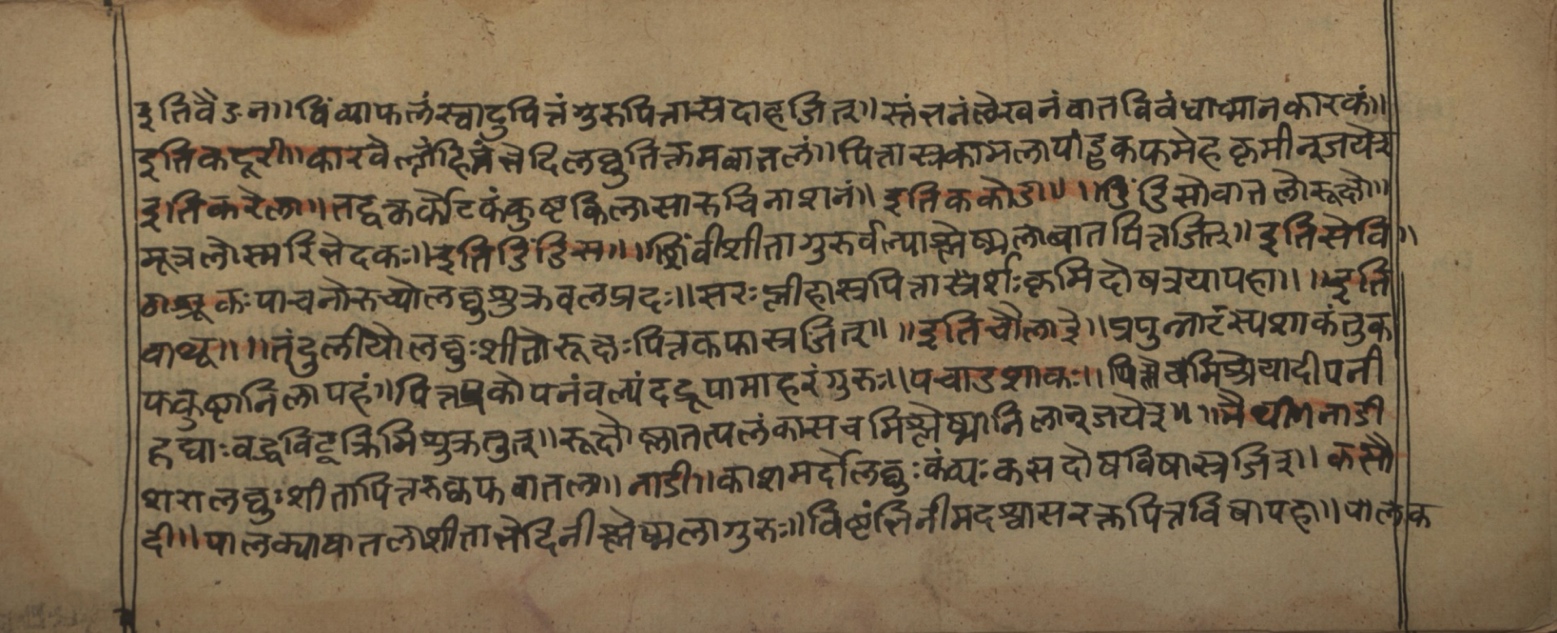 इतिवैङन॥ विंव्याफलंस्वादुपित्तंगुरुपित्तास्रदाहजित्॥ स्तंत्तनंलेखनंवातविवंधाध्मानकारकं॥
इतिकदूरी॥ कारवेल्लंहिमंत्तेदिलघुतिक्तमवातलं॥ पित्तास्रकामलापांडुकफमेहकृमीन्जयेत्
इतिकरेला॥ तद्वत्कर्कोटकंकुष्टकिलासारुचिनाशनं॥ इतिककोडा॥ ॥डिंडिसोवातलोरूक्षो॥
मूत्रलोस्मरित्तेदकः॥ इतिडिंडिस॥ शिंवीशीतागुरुर्वल्याश्लेष्मलावातपित्तजित्॥ इतिसेवि॥
कःपाचनोरुच्योलघुशुक्रवलप्रदः॥ सरःप्लीहास्रपित्तास्रर्शःकृमिदोषत्रयापहा॥ ॥इति
वाथू॥ ॥तंदुलीयोलघुःशीतोरूक्षःपित्तकफास्रजित्॥ ॥इतिचौलाई॥ स्पशाकंतुक
फकुष्ठानिलापहं॥ पित्तप्रकोपनंवल्यंदद्रूपामाहरंगुरुः॥ पचाडशाकः॥
वद्धविट्क्रिमिशुक्रतुत्॥ रूक्षोनिलान्जयेत्॥ नाडी
शरालघुःशीतापित्तरुक्कफवातला॥ नाडी॥ काशमर्दोलघुःकंठ्यःकसदोषविषास्रजित्॥ कसौ
दी॥ पालक्यावातलाशीतात्तेदिनीश्लेष्मलागुरुः॥ विष्टंत्तिनीमदश्वासरक्तपित्तविषापहा॥ पालक